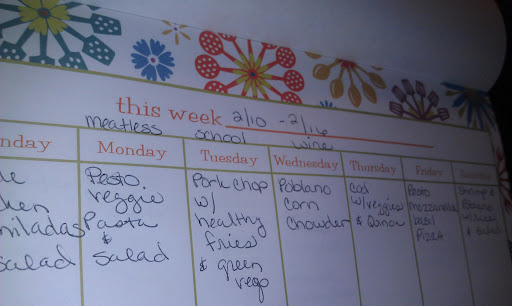 this week 2/10 - 2/16
meatless school wine
nday Monday Tuesday Wednesday Thursday Friday
ken
hiladas
salad
Pesto.
veggie
Pasta
&
Salad
Pork chop
w/
healthy
fries
& green
vego
Poblano
corn
Chowder
cod
w/veggies
& Quinoa
Pesto
mozzarella
basil
Pizza
Shrimp &
& salad